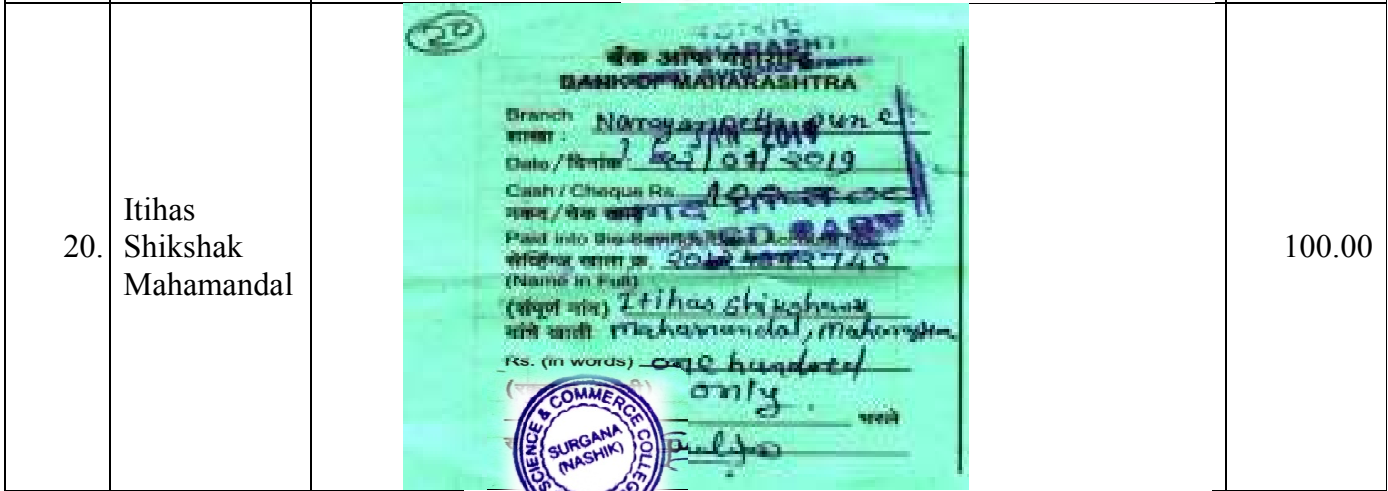 20.
Itihas
Shikshak
Mahamandal
20
बँक ऑफ महाराष्ट्र
BANK OF MAHARASHTRA
Branch
शाखा : Narayanpeth pune
JAN 2019
Date / दिनांक 22/01/2019
Cash / Cheque Rs.
नकद / चेक
Paid into the Savings Bank Account No.
सेव्हिंग्ज खाता क्र.
(Name in Full)
(संपूर्ण नांव) Itihas Shikshak
यांचे खाती Mahamandal, Maharashtra
Rs. (in words) one hundred
only.
भरले
SCIENCE & COMMERCE COLLEGE
SURGANA
(NASHIK)
100.00